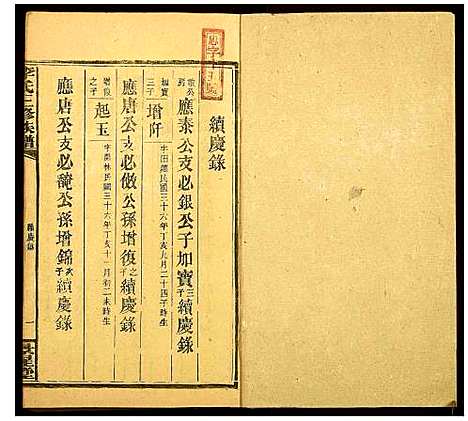 續慶錄
應泰公支必銀公子加寶三子續慶錄
加寶三子
增阡
字田題民國三十六年丁亥九月二十四子時生
應唐公支必倣公孫增復之子續慶錄
增復之子
起玉
字崇林民國三十六年丁亥十一月初二未時生
應唐公支必龍公孫增錦次子續慶錄
李氏三修族譜
續慶錄
一